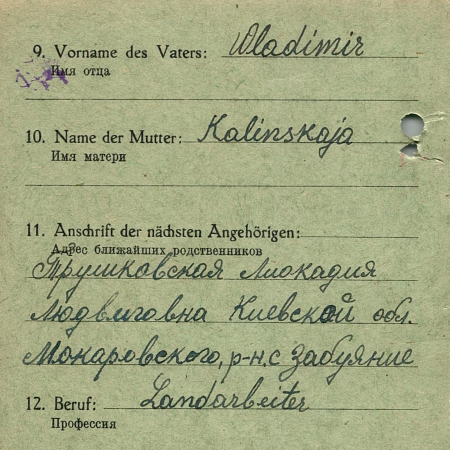 9. Vorname des Vaters: Wladimir
Имя отца
10. Name der Mutter: Kalinskaja
Имя матери
11. Anschrift der nächsten Angehörigen:
Адрес ближайших родственников
Трушковская Лиокадия
Людвиговна Киевской обл.
Макаровского, р-н. с Забуяние
12. Beruf: Landarbeiter
Профессия